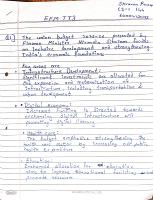 EFM TT3
Q1) The union budget 2024-25 presented by
Finance Minister Nirmala Sitharam focus
on Inclusive Development and strengthening
India's economic foundations.
Key areas are
Infrastructure Development:
Significant investments are allocated for
the expansion and modernization of
infrastructure including transportation &
urban development
• Digital Economy
Increased funding is directed towards
enhancing digital infrastructure will
promoting digital literacy
• Health care:
The budget emphasize strengthening the
health care sector by increasing
public expenditure
• Education:
Enhanced allocation for education
aims to improve educational facility and
promote research